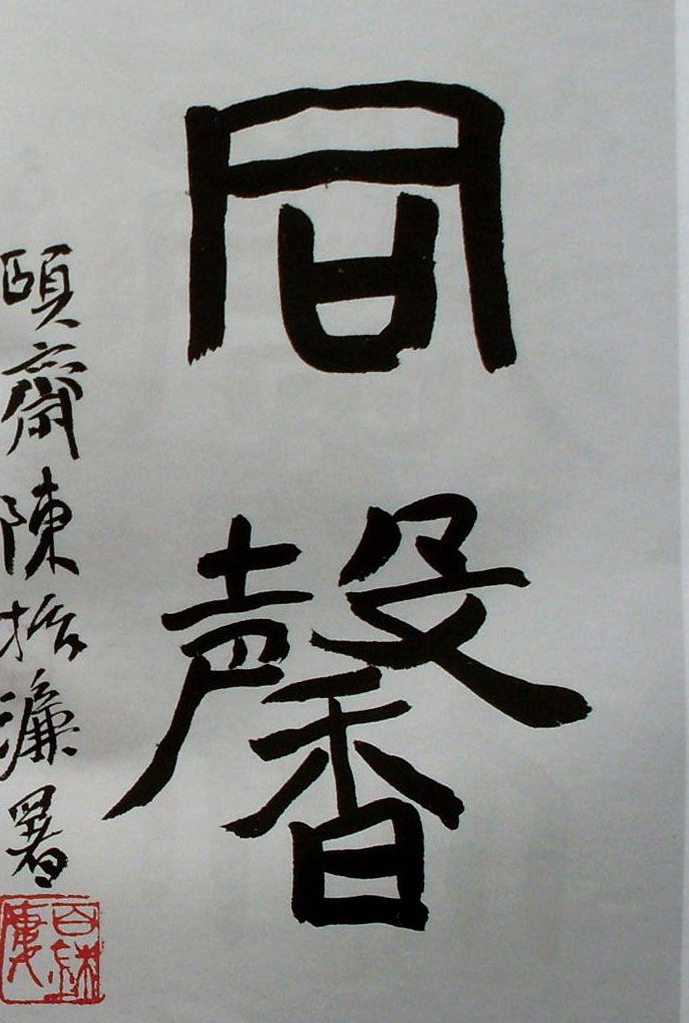 同馨
頤齋陳振濂署